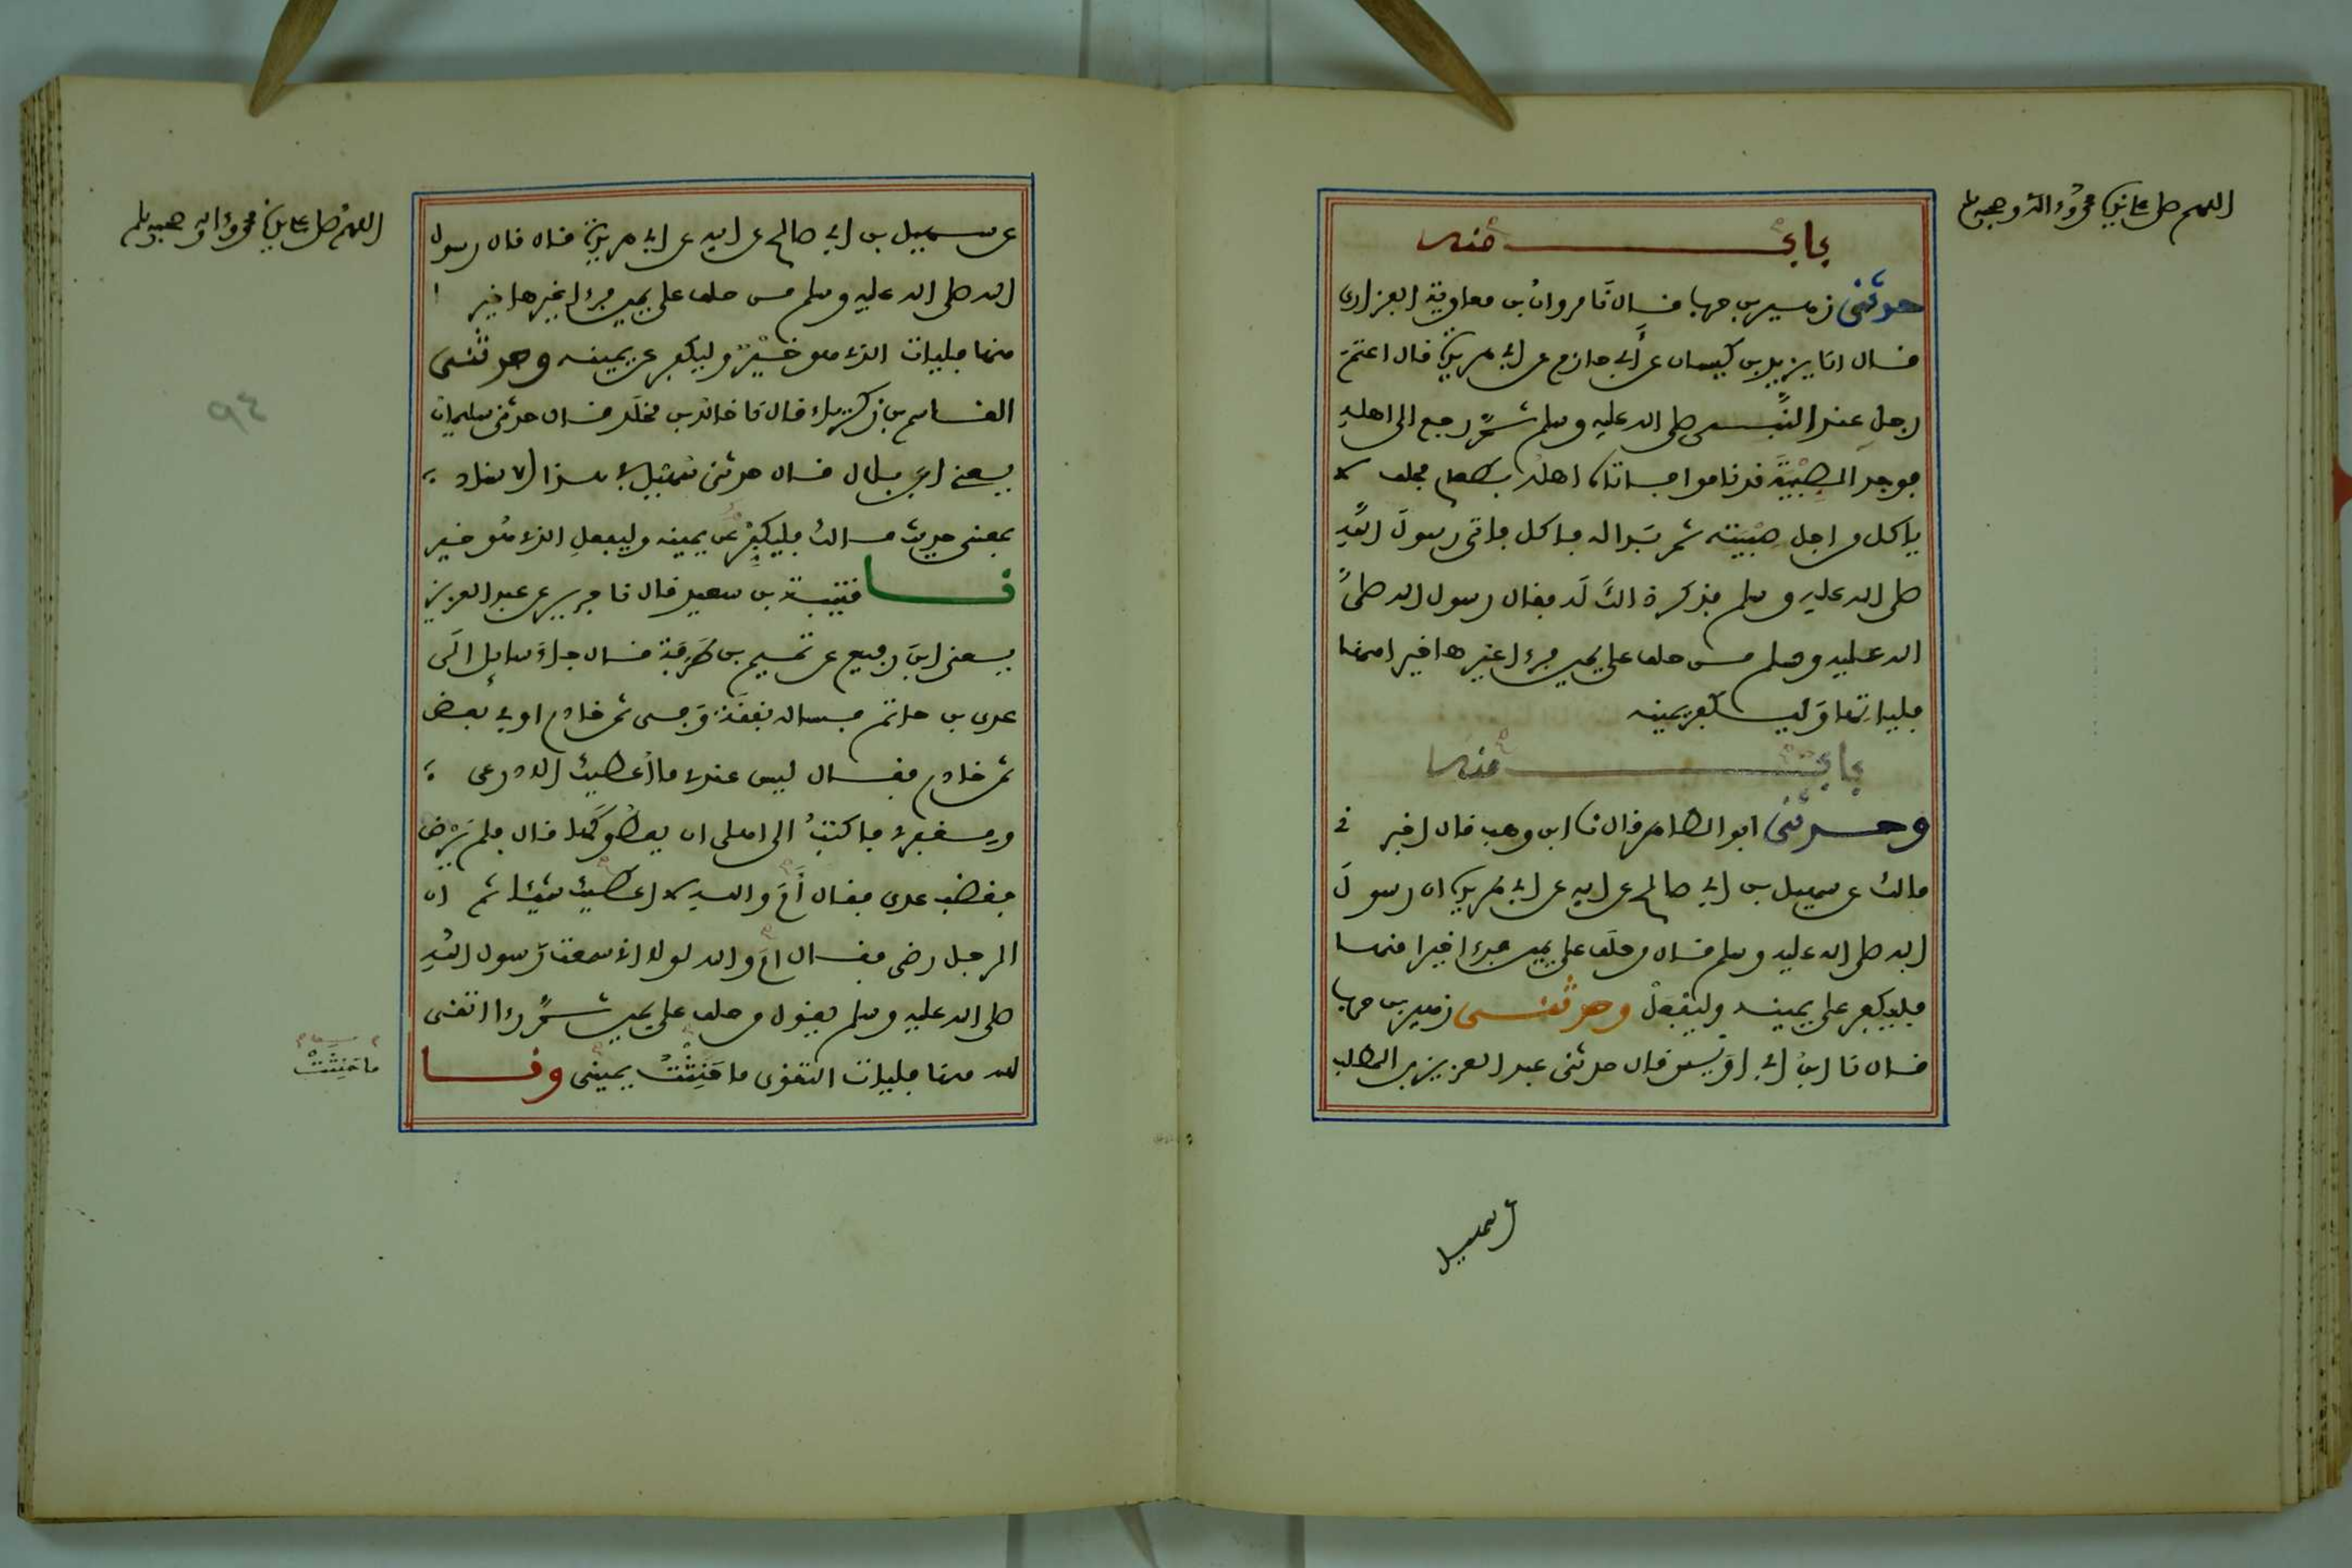 اللهم صل على نبينا محمد واله وصحبه وسلم
باب منه
حدثني زهير بن حرب قال نا مروان بن معاوية الفزاري
قال انا يزيد بن كيسان عن أبي حازم عن ابي هريرة قال اعتم
رجل عند النبي صلى الله عليه وسلم ثم رجع الى اهله
فوجد الصبية قد ناموا فاتاه اهله بطعام فحلف لا
ياكل من اجل صبيته ثم بدا له فاكل فاتى رسول الله
صلى الله عليه وسلم فذكر ذلك له فقال رسول الله صلى
الله عليه وسلم من حلف على يمين فراى غيرها خيرا منها
فلياتها وليكفر يمينه
باب منه
وحدثني ابو الطاهر قال نا ابن وهب قال اخبرني
مالك عن سهيل بن ابي صالح عن ابيه عن ابي هريرة ان رسول
الله صلى الله عليه وسلم قال من حلف على يمين فراى خيرا منها
فليكفر على يمينه وليفعل وحدثني زهير بن حرب
قال نا ابن ابي اويس قال حدثني عبد العزيز بن المطلب
عن سهيل
اللهم صل على نبينا محمد واله وصحبه وسلم
عن سهيل بن ابي صالح عن ابيه عن ابي هريرة قال قال رسول
الله صلى الله عليه وسلم من حلف على يمين فراى غيرها خيرا
منها فليات الذي هو خير وليكفر عن يمينه وحدثني
القاسم بن زكرياء قال نا خالد بن مخلد قال حدثني سليمان
يعني ابن بلال قال حدثني سهيل في هذا الاسناد
بمعنى حديث مالك فليكفر عن يمينه وليفعل الذي هو خير
نا قتيبة بن سعيد قال نا جرير عن عبد العزيز
يعني ابن رفيع عن تميم بن طرفة قال جاء سايل الى
عدي بن حاتم فساله نفقة في ثمن خادم او في بعض
ثمن خادم فقال ليس عندي ما أعطيك الا درعي
ومغفري فاكتب الى اهلي ان يعطوكها قال فلم يرض
فغضب عدي فقال أم والله لا اعطيك شيئا ثم ان
الرجل رضي فقال ام والله لولا اني سمعت رسول الله
صلى الله عليه وسلم يقول من حلف على يمين ثم راى اتقى
لله منها فليات التقوى ما حنثت يميني ونا
ما حنثت
٩٤